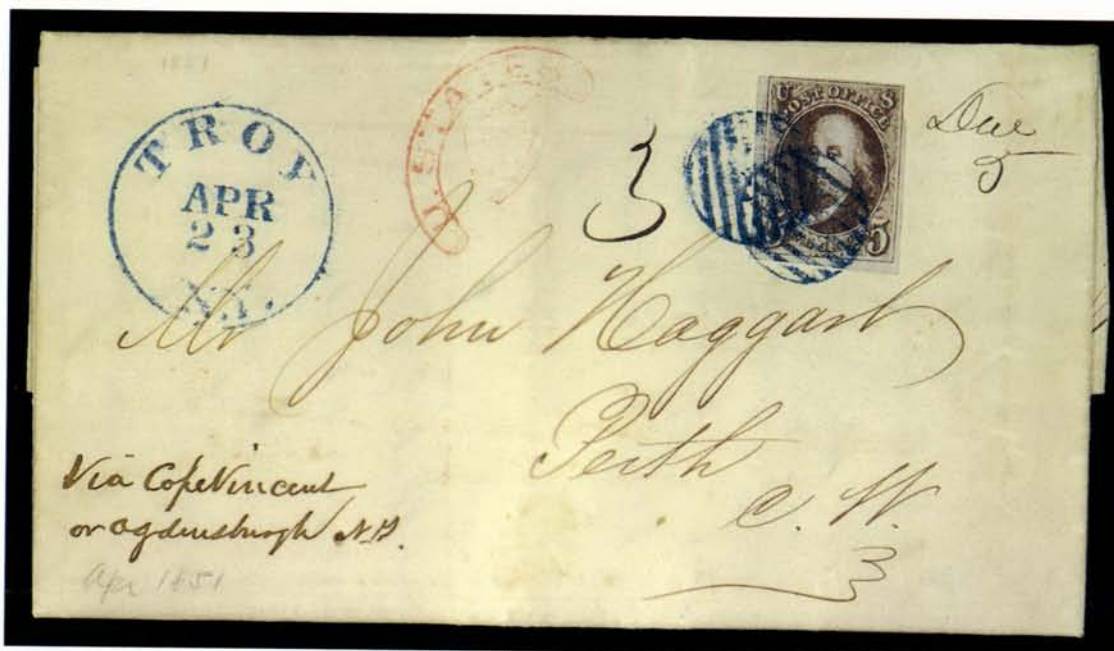 TROY
APR
23
N.Y.
U. STATES
3
U S
POST OFFICE
5
Due
5
Mr John Haggart
Perth
C. W.
Via Cape Vincent
or Ogdensburgh N.Y.
Apr 1851